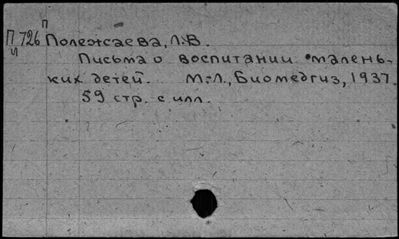 П
П 726 Полежаева, Л.В.
И
Письма о воспитании малень-
ких детей. М.-Л., Биомедгиз, 1937.
59 стр. с илл.